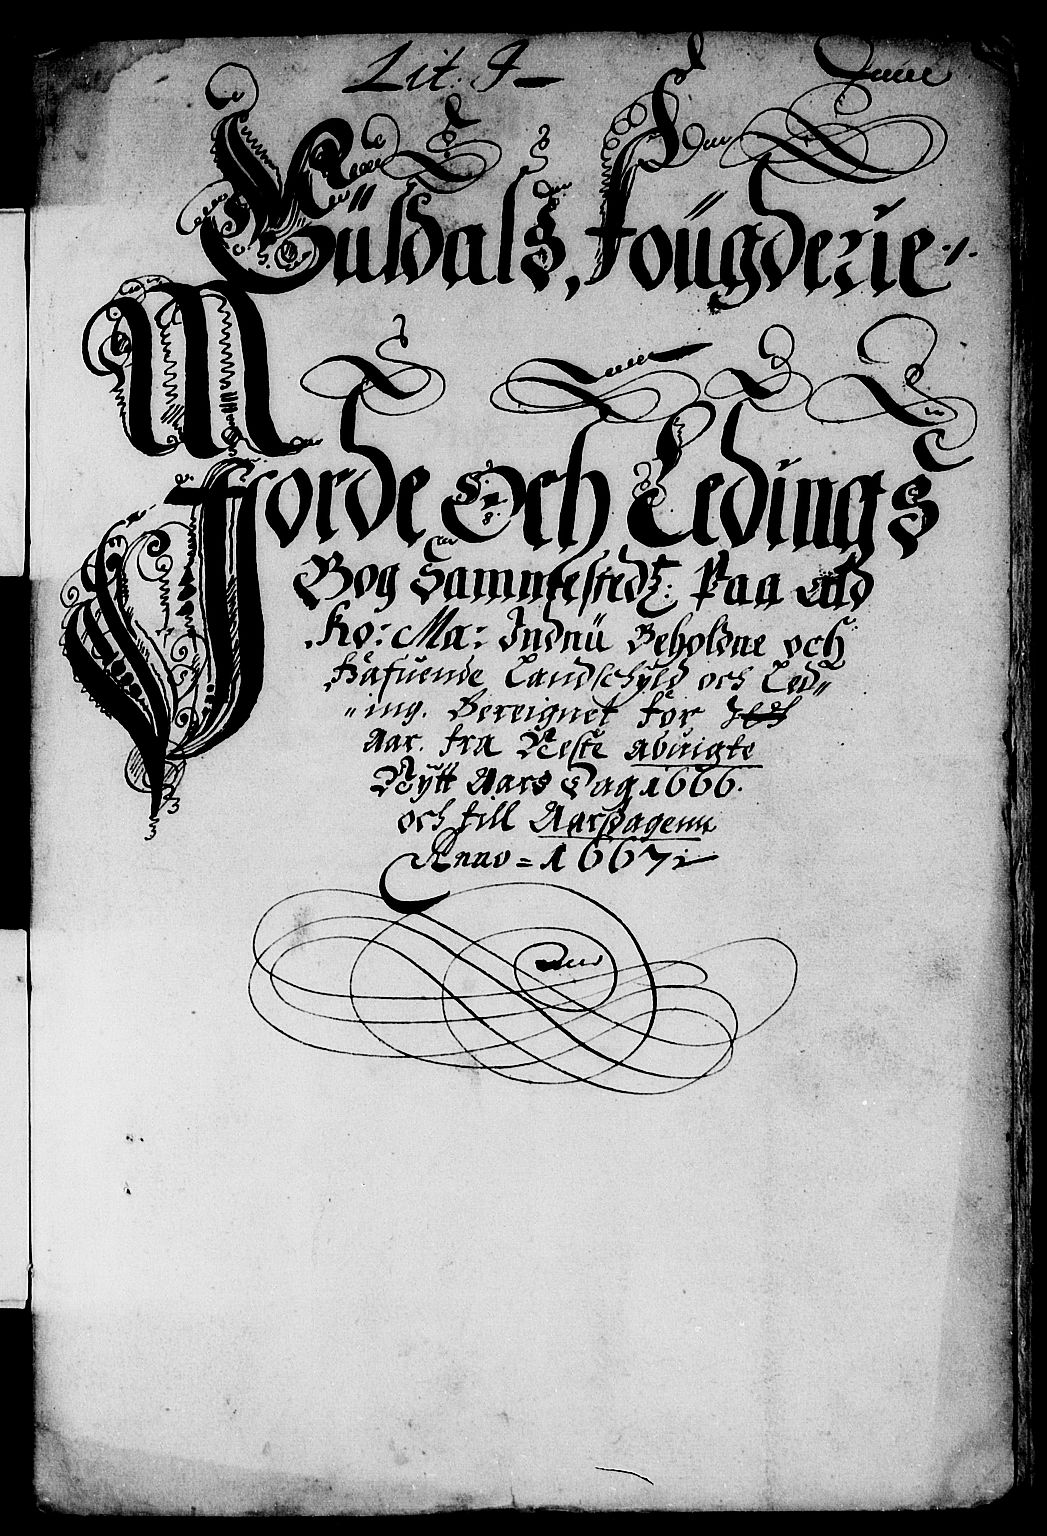 Lit. J
Güldals, fougderie
Jorde Och Ledings
Bog Sammestedtz: Paa ald
Ko: Ma: Indnu Beholdne och
Hafuende Landschyld och Led"
"ing. Bereignet for
Aar. fra Neste abuigte
Nÿtt Aars Dag 1666.
och till Aarsdagenn
Anno = 1667